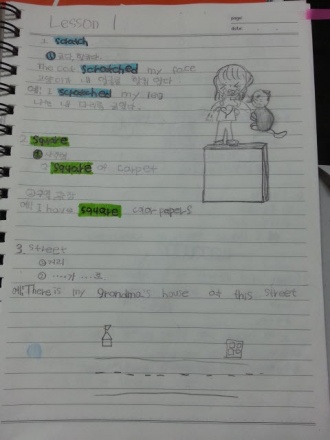 Lesson 1
page:
date:
1. scratch
The cat scratched my face
예) I scratched my leg
나는 내 다리를 긁었다.
2. square
2 square of carpet
예) I have square color papers
3. street
① 거리
예) There is my grandma's house at this street